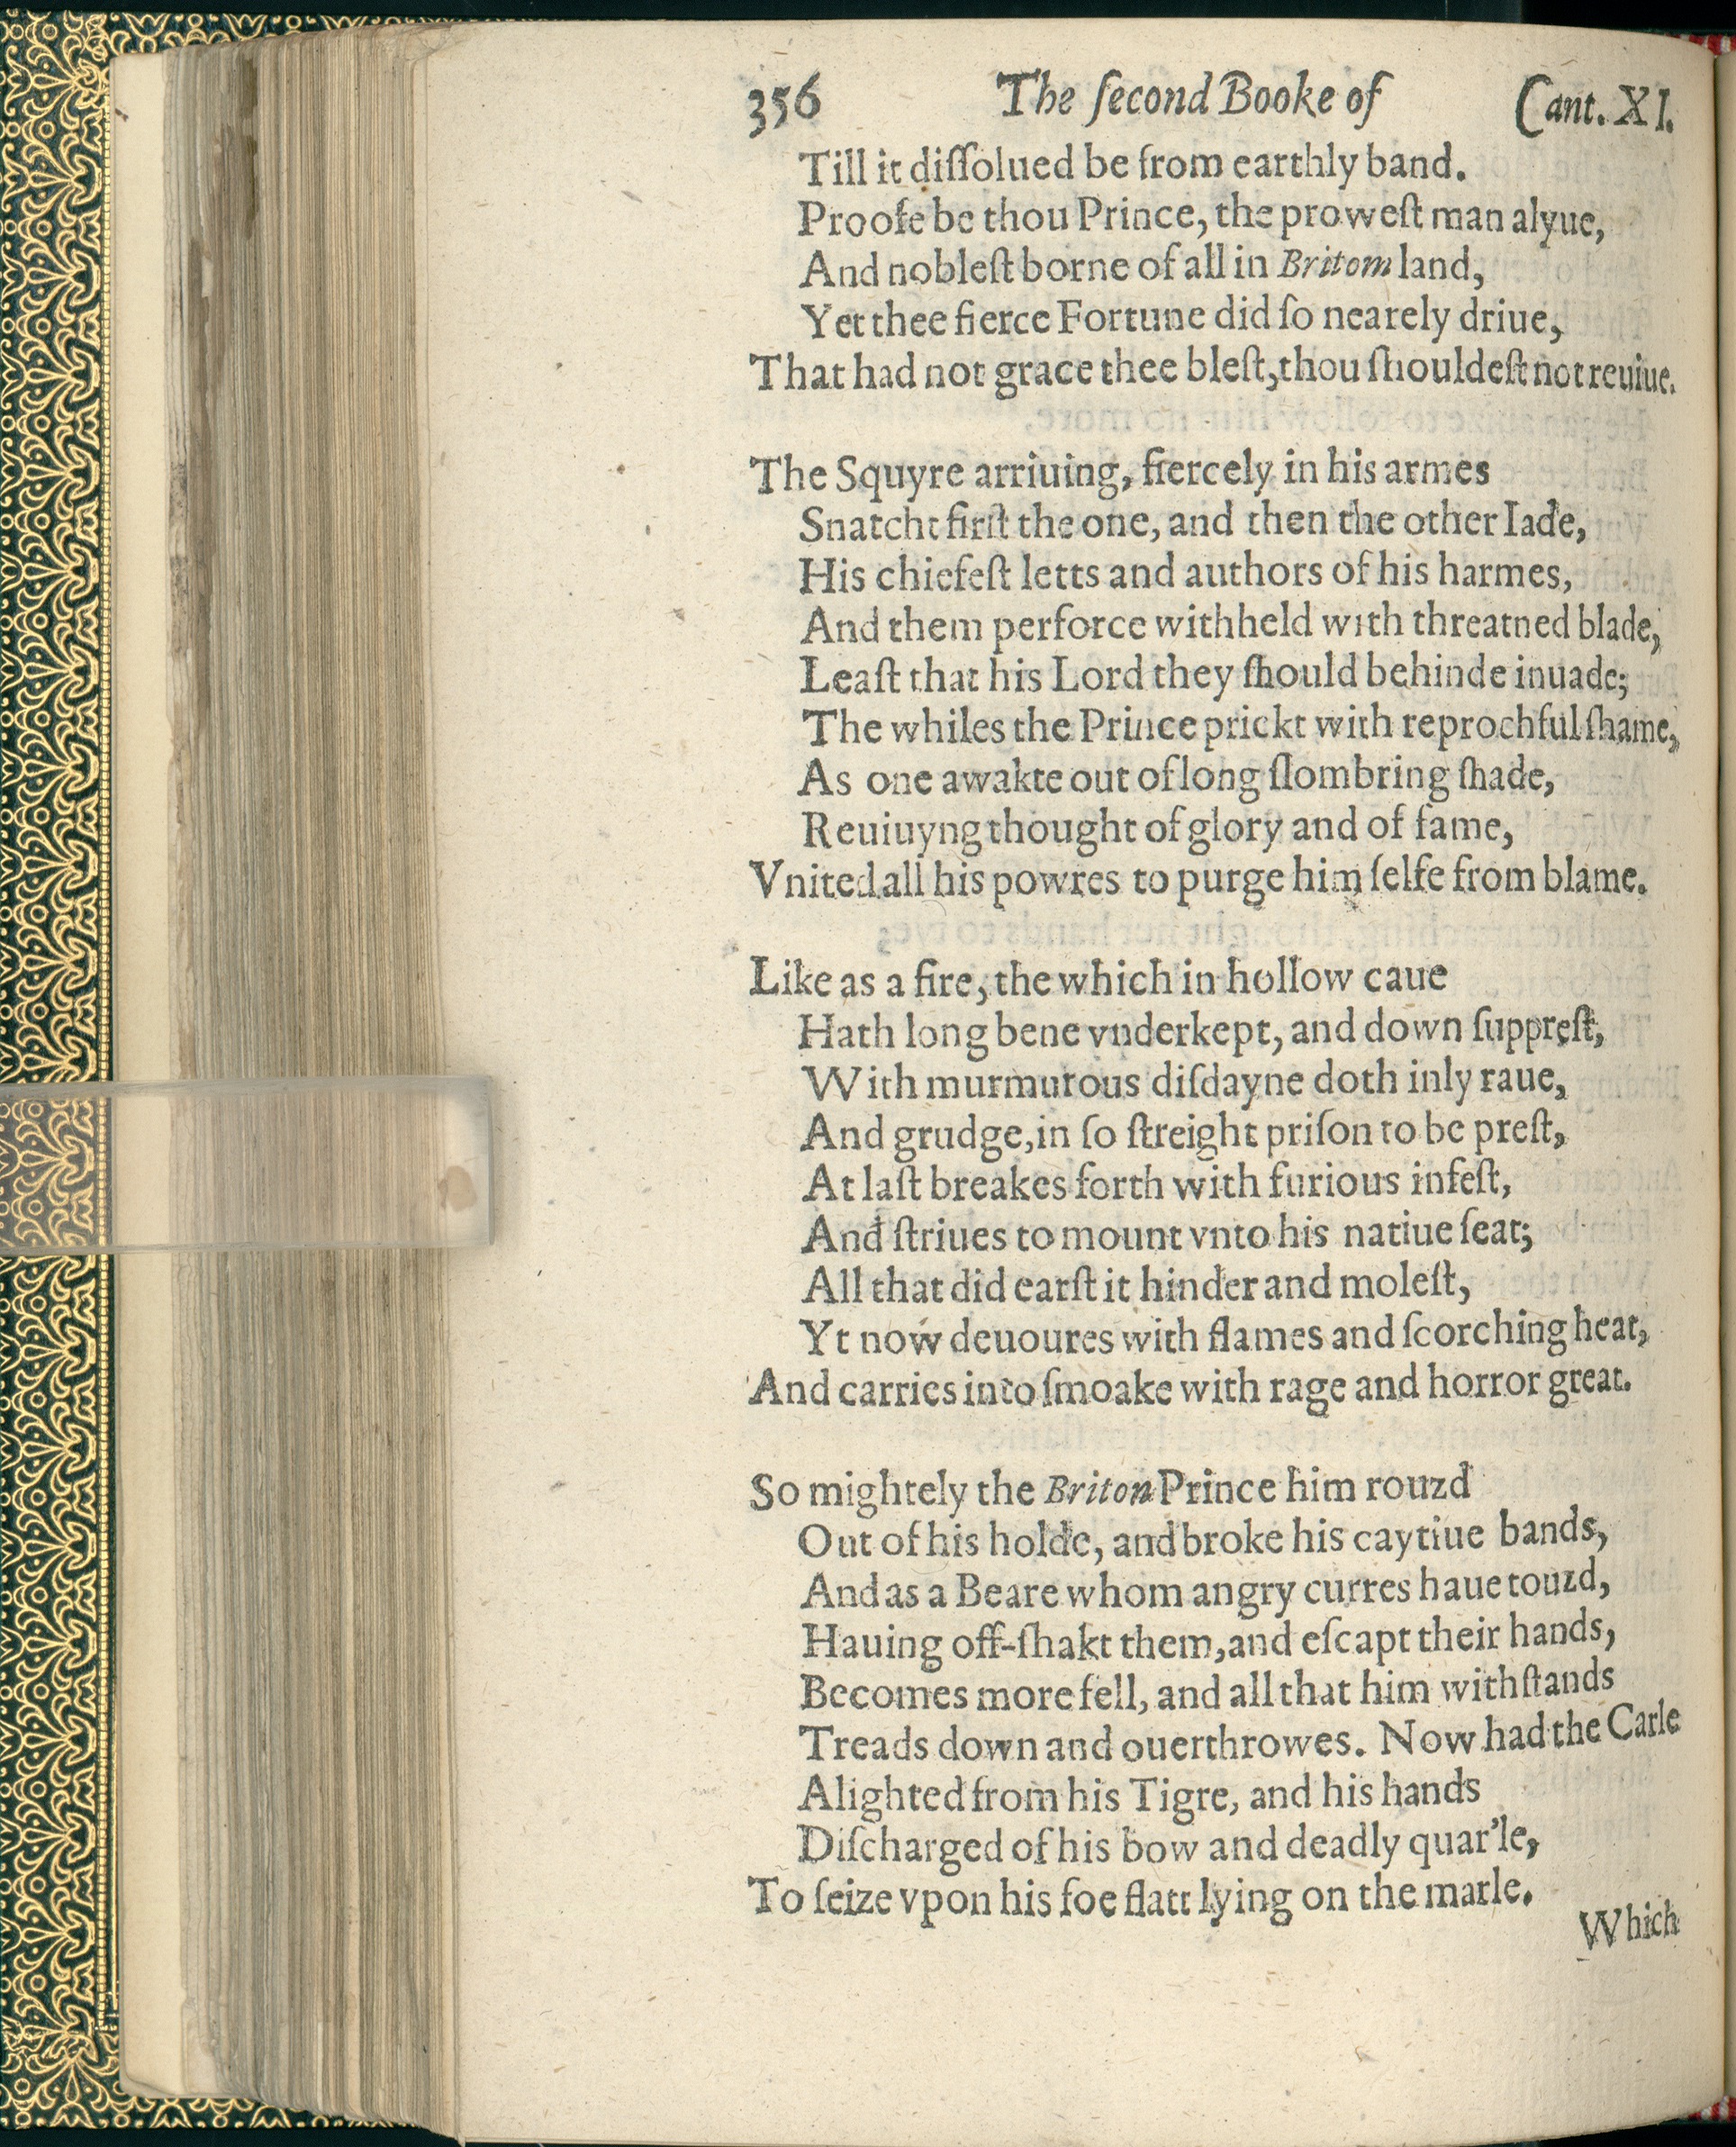 356 The ſecond Booke of Cant. XI.
Till it diſſolued be from earthly band.
Proofe be thou Prince, the proweſt man alyue,
And nobleſt borne of all in Britom land,
Yet thee fierce Fortune did ſo nearely driue,
That had not grace thee bleſt, thou ſhouldeſt not reuiue.
The Squyre arriuing, fiercely in his armes
Snatcht firſt the one, and then the other Iade,
His chiefeſt letts and authors of his harmes,
And them perforce withheld with threatned blade,
Leaſt that his Lord they ſhould behinde inuade;
The whiles the Prince prickt with reprochful ſhame,
As one awakte out of long ſlombring ſhade,
Reuiuyng thought of glory and of fame,
Vnited all his powres to purge him ſelfe from blame.
Like as a fire, the which in hollow caue
Hath long bene vnderkept, and down ſuppreſt,
With murmurous diſdayne doth inly raue,
And grudge, in ſo ſtreight priſon to be preſt,
At laſt breakes forth with furious infeſt,
And ſtriues to mount vnto his natiue ſeat;
All that did earſt it hinder and moleſt,
Yt now deuoures with flames and ſcorching heat,
And carries into ſmoake with rage and horror great.
So mightely the Briton Prince him rouzd
Out of his holde, and broke his caytiue bands,
And as a Beare whom angry curres haue touzd,
Hauing off-ſhakt them, and eſcapt their hands,
Becomes more fell, and all that him withſtands
Treads down and ouerthrowes. Now had the Carle
Alighted from his Tigre, and his hands
Diſcharged of his bow and deadly quar'le,
To ſeize vpon his foe flatt lying on the marle.
Which